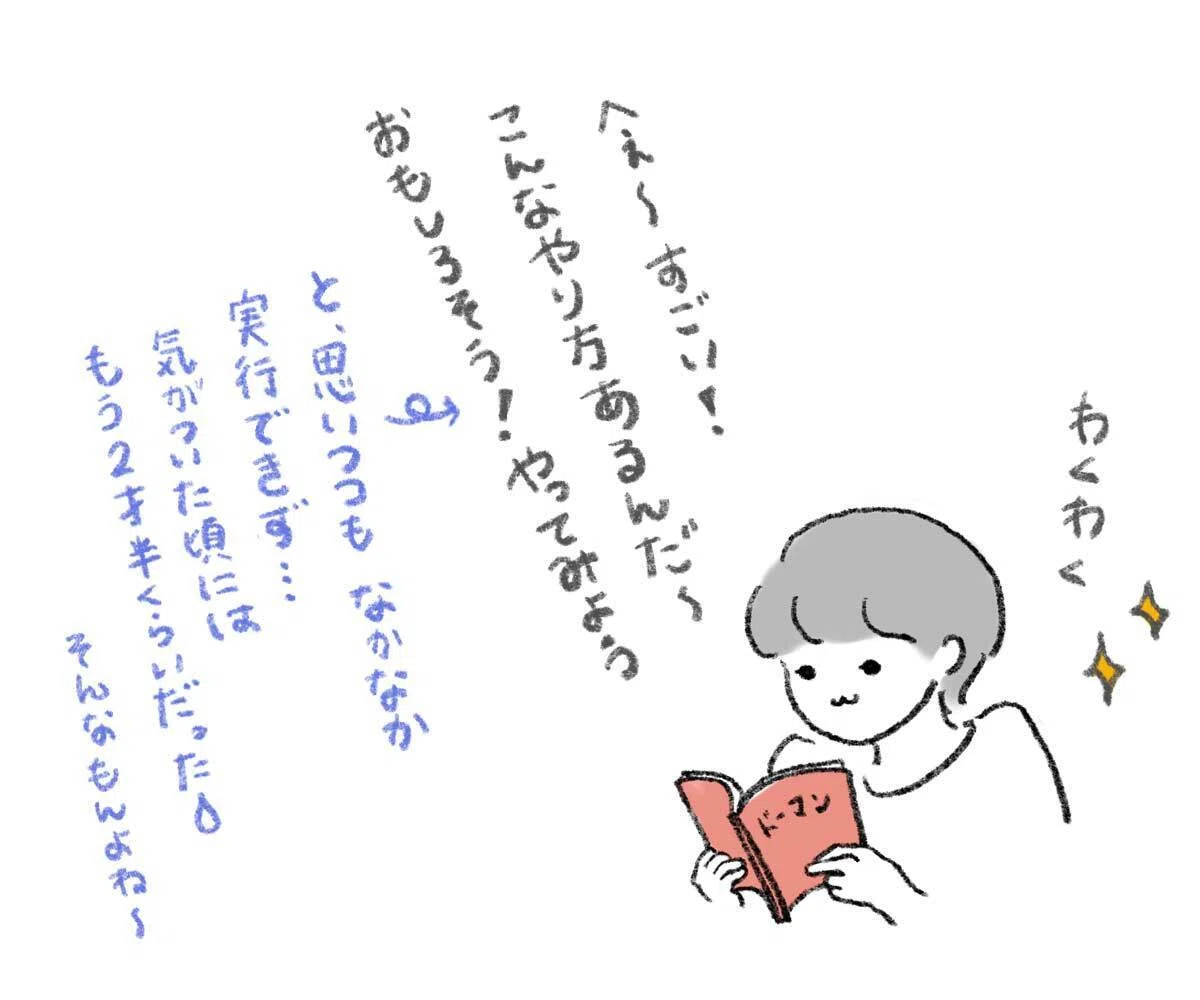 わくわく
へぇ〜すごい!
こんなやり方あるんだ〜
おもしろそう!やってみよう
と、思いつつも なかなか
実行できず…
気がついた頃には
もう2才半くらいだった
そんなもんよね〜
ドーマン